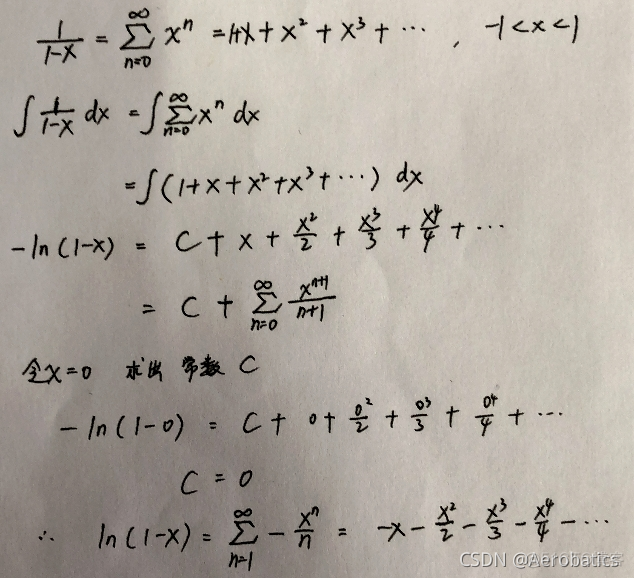 1/(1-x) = ∑_{n=0}^{∞} x^n = 1+x + x² + x³ + ⋯ , -1<x<1
∫ 1/(1-x) dx = ∫ ∑_{n=0}^{∞} x^n dx
= ∫ (1+x+x²+x³+⋯) dx
-ln(1-x) = C + x + x²/2 + x³/3 + x⁴/4 + ⋯
= C + ∑_{n=0}^{∞} x^{n+1}/(n+1)
令x=0 求出 常数 C
-ln(1-0) = C + 0 + 0²/2 + 0³/3 + 0⁴/4 + ⋯
C = 0
∴ ln(1-x) = ∑_{n=1}^{∞} - x^n/n = -x - x²/2 - x³/3 - x⁴/4 - ⋯
CSDN @Aerobatics